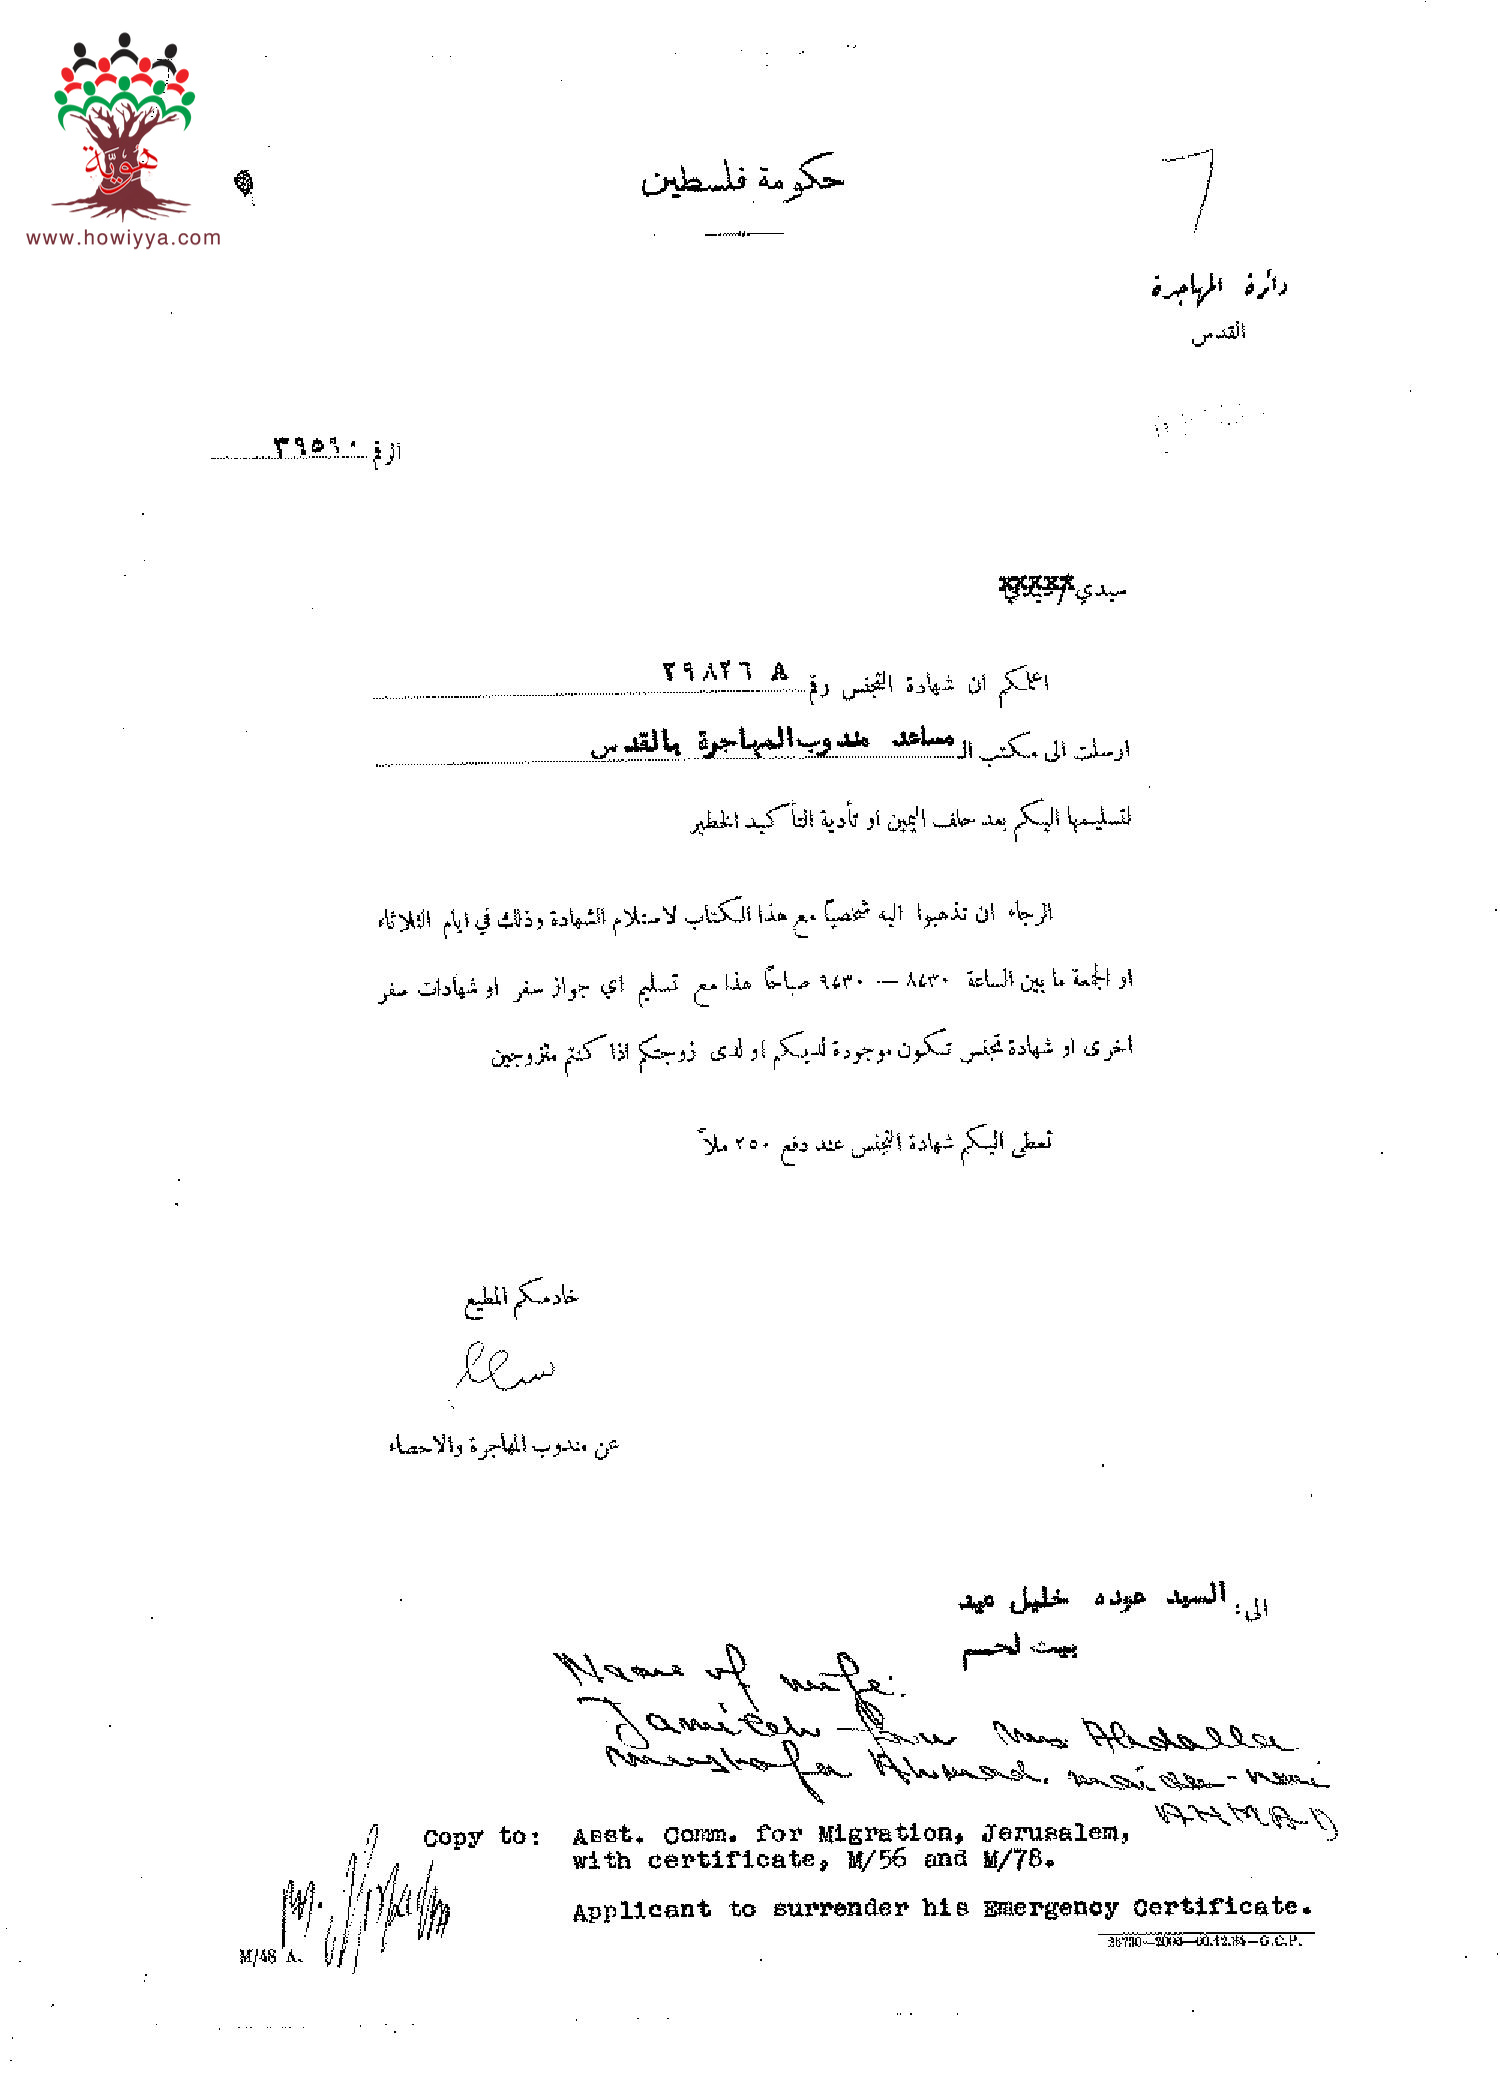 هوية
www.howiyya.com
حكومة فلسطين
دائرة المهاجرة
القدس
الرقم ٣٩٥٩٠
سيدي/
اعلمكم ان شهادة التجنس رقم ٢٩٨٢٦ A
ارسلت الى مكتب الـ مساعد مندوب المهاجرة بالقدس
لتسليمها اليكم بعد حلف اليمين او تأدية التأكيد الخطير
الرجاء ان تذهبوا اليه شخصياً مع هذا الكتاب لاستلام الشهادة وذلك في ايام الثلاثاء
او الجمعة ما بين الساعة ٨،٣٠ — ٩،٣٠ صباحاً هذا مع تسليم اي جواز سفر او شهادات سفر
اخرى او شهادة تجنس تكون موجودة لديكم او لدى زوجتكم اذا كنتم متزوجين
تعطى اليكم شهادة التجنس عند دفع ٢٥٠ ملاً
خادمكم المطيع
عن مندوب المهاجرة والاحصاء
الى: السيد عوده خليل عيد
بيت لحم
Name of wife:
Jamileh Abdalla
Mustafa Ahmad. maiden-name
AHMAD
Copy to: Asst. Comm. for Migration, Jerusalem,
with certificate, M/56 and M/78.
Applicant to surrender his Emergency Certificate.
M/48 A.